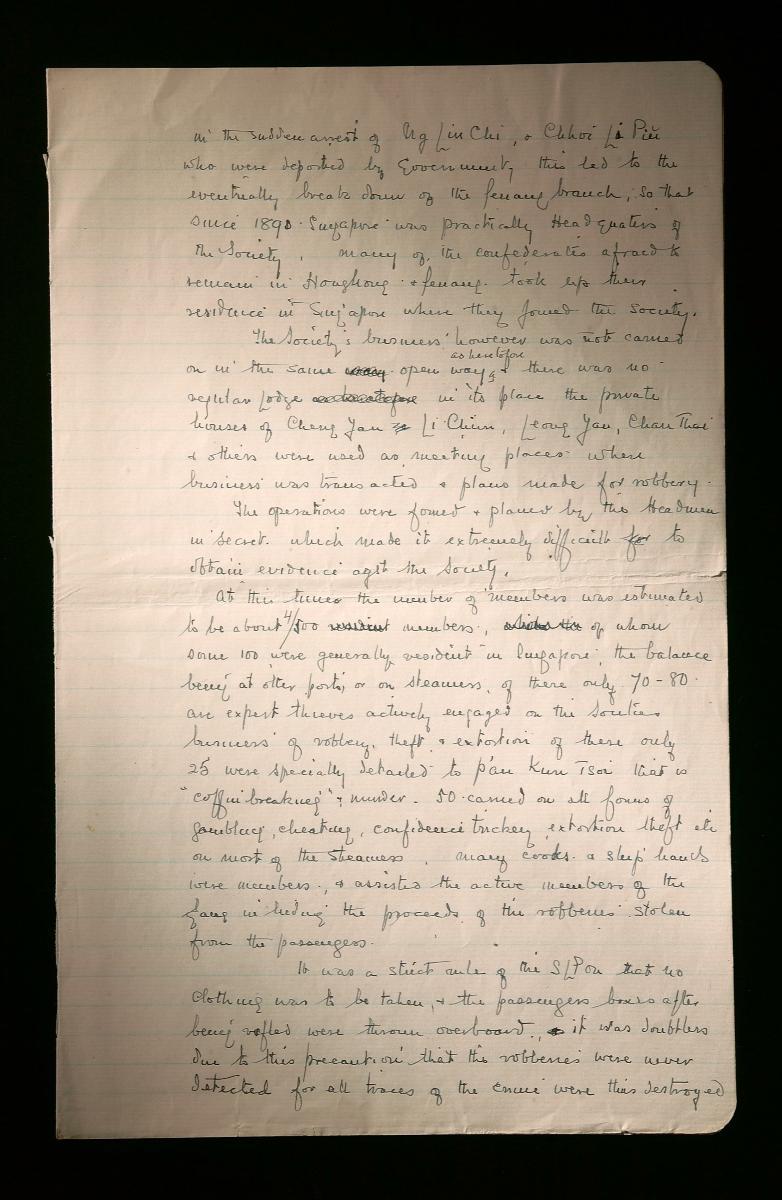 in the sudden arrest of Ng Lin Chi, & Chhoi Li Piu
who were deported by Government, this led to the
eventually break down of the Penang branch; so that
since 1890 Singapore was practically Head quaters of
the Society. many of the confederates afraid to
remain in Hongkong & Penang took up their
residence in Singapore where they joined the Society.
The Society's business however was not carried
as heretofore
on in the same open way, & there was no
regular Lodge as heretofore in its place the private
houses of Cheng Yan Li Chiun, Leong Yau, Chan Thai
& others were used as meeting places where
business was transacted & plans made for robbery.
The operations were fomed & planed by the Headmen
in secret. which made it extremely difficult for to
obtain evidence agst the Society.
At this time the number of members was estimated
to be about 4/500 resident members, of whom
some 100 were generally resident in Singapore, the balance
being at other ports or on steamers, of these only 70-80
are expert thieves actively engaged on the Societies
business of robbery, theft & extortion of these only
25 were specially detailed to P'au Kun Tsoi that is
"coffin breaking" & murder. 50 carried on all forms of
gambling, cheating, confidence trickery, extortion theft etc
on most of the Steamers. many cooks & ship hands
were members, & assisted the active members of the
gang in hiding the proceeds of the robberies stolen
from the passengers.
It was a strict rule of the SLPou that no
clothing was to be taken, & the passengers boxes after
being rifled were thrown overboard, it was doubtless
due to this precaution that the robberies were never
detected for all traces of the crime were thus destroyed